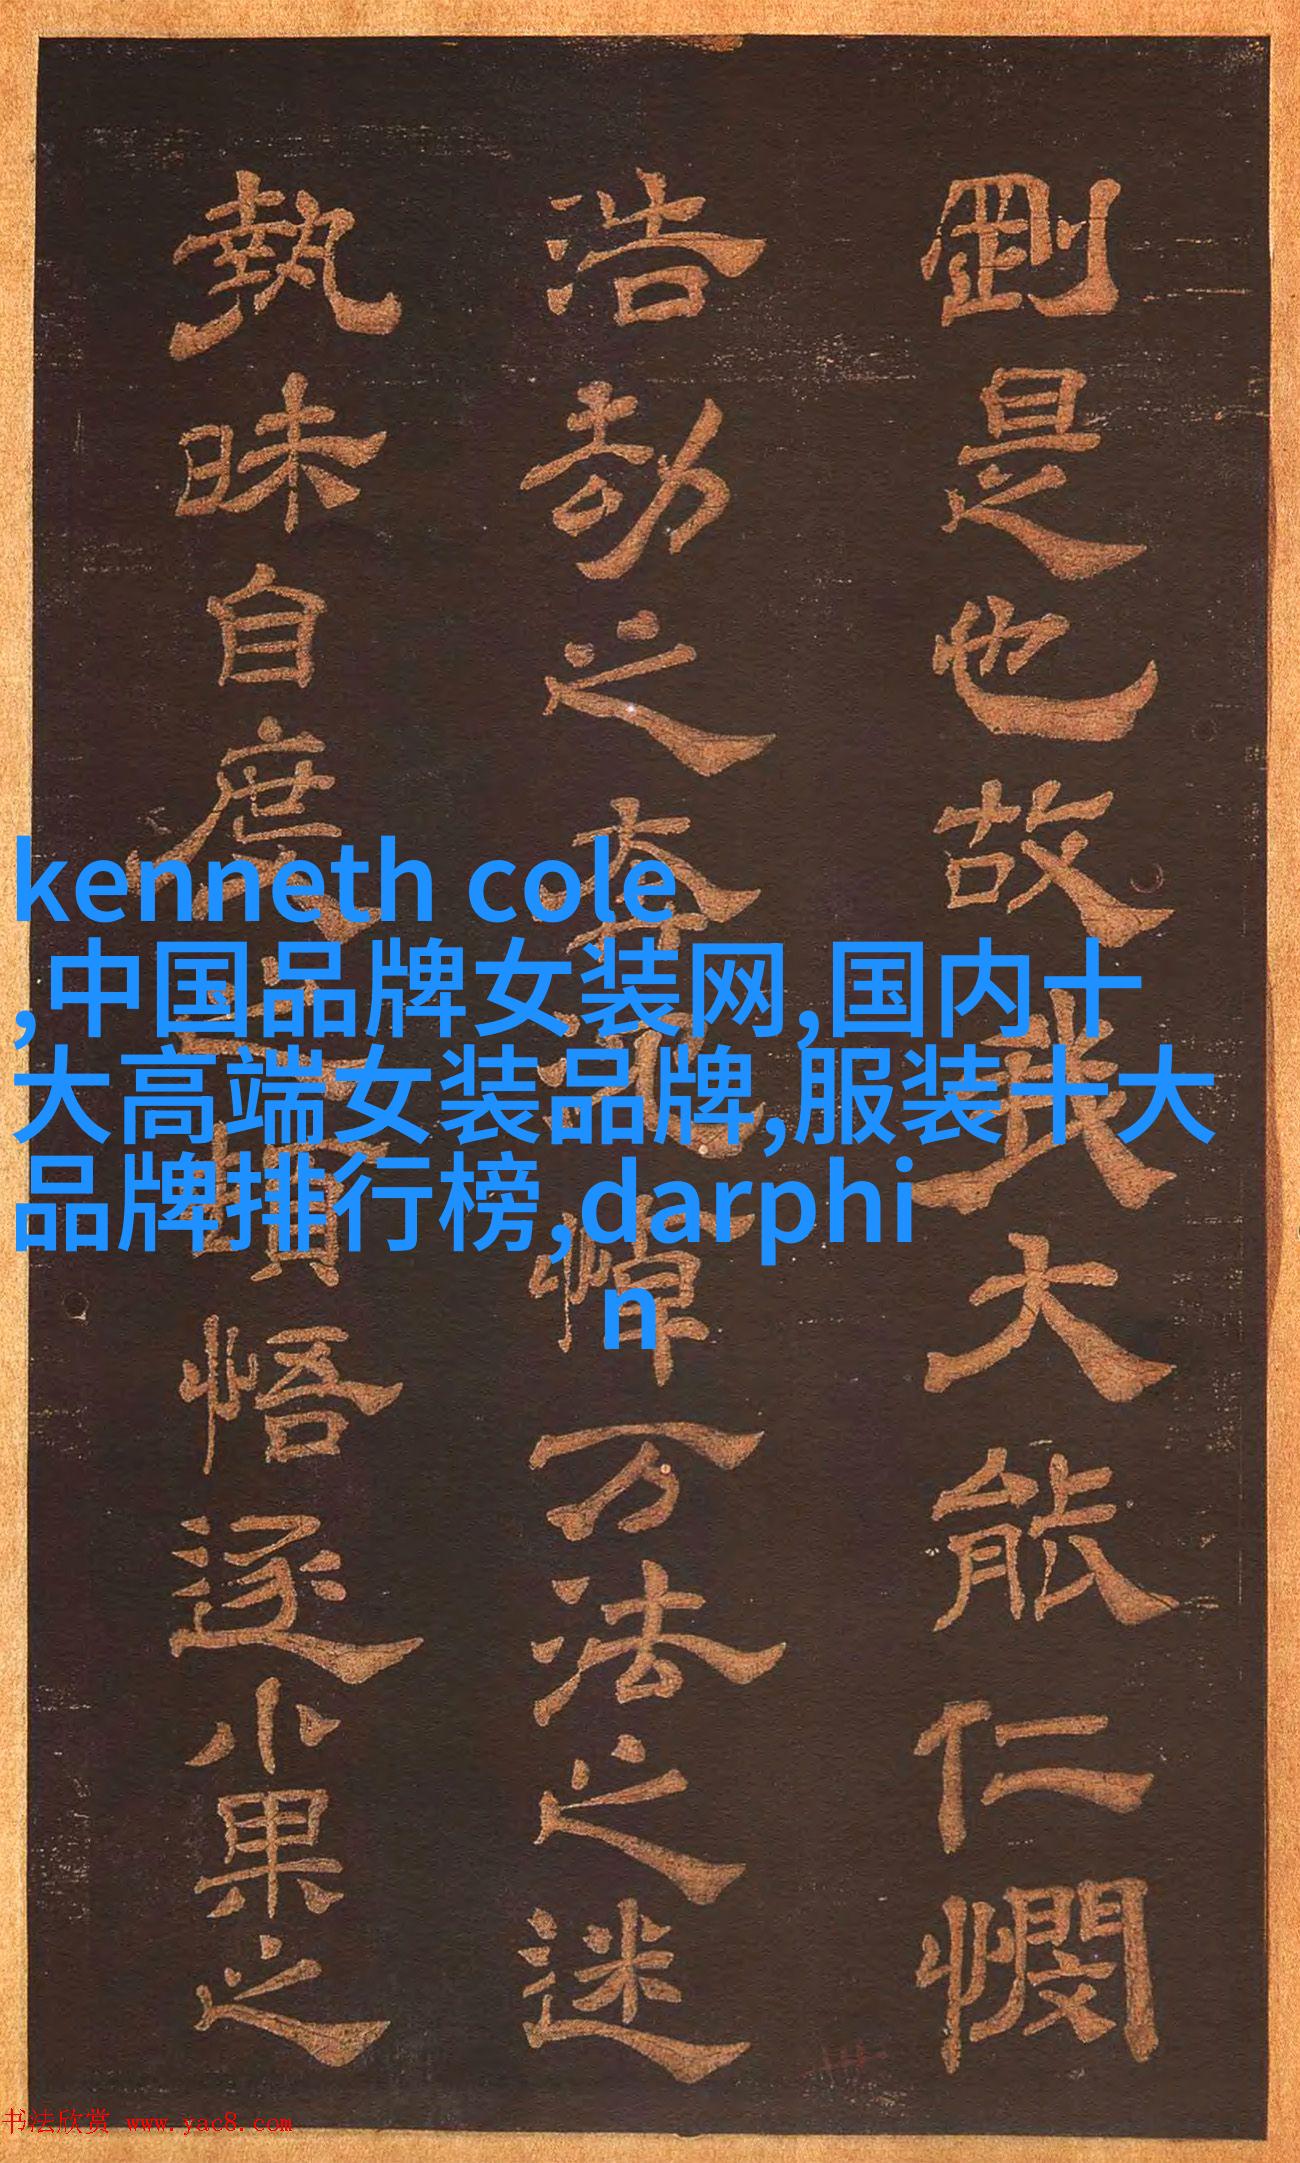 剛是也故我大能仁憫
浩劫之悼万法之迷
執昧自悟逐小果之
kenneth cole
,中国品牌女装网,国内十
大高端女装品牌,服装十大
品牌排行榜,darphi
n
书法欣赏 www.yac8.com